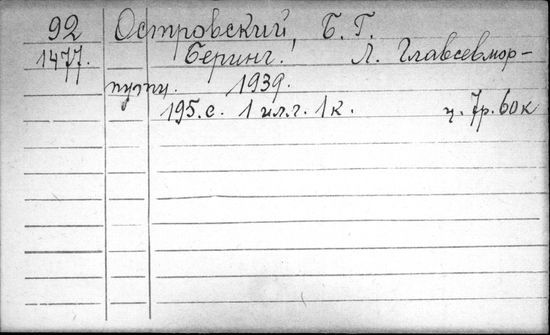 92 Островский, Б. Г.
1477. Беринг. Л. Главсевмор-
пути. 1939.
195.с. 1 ил.г. 1 к. ц. 7р. 60к